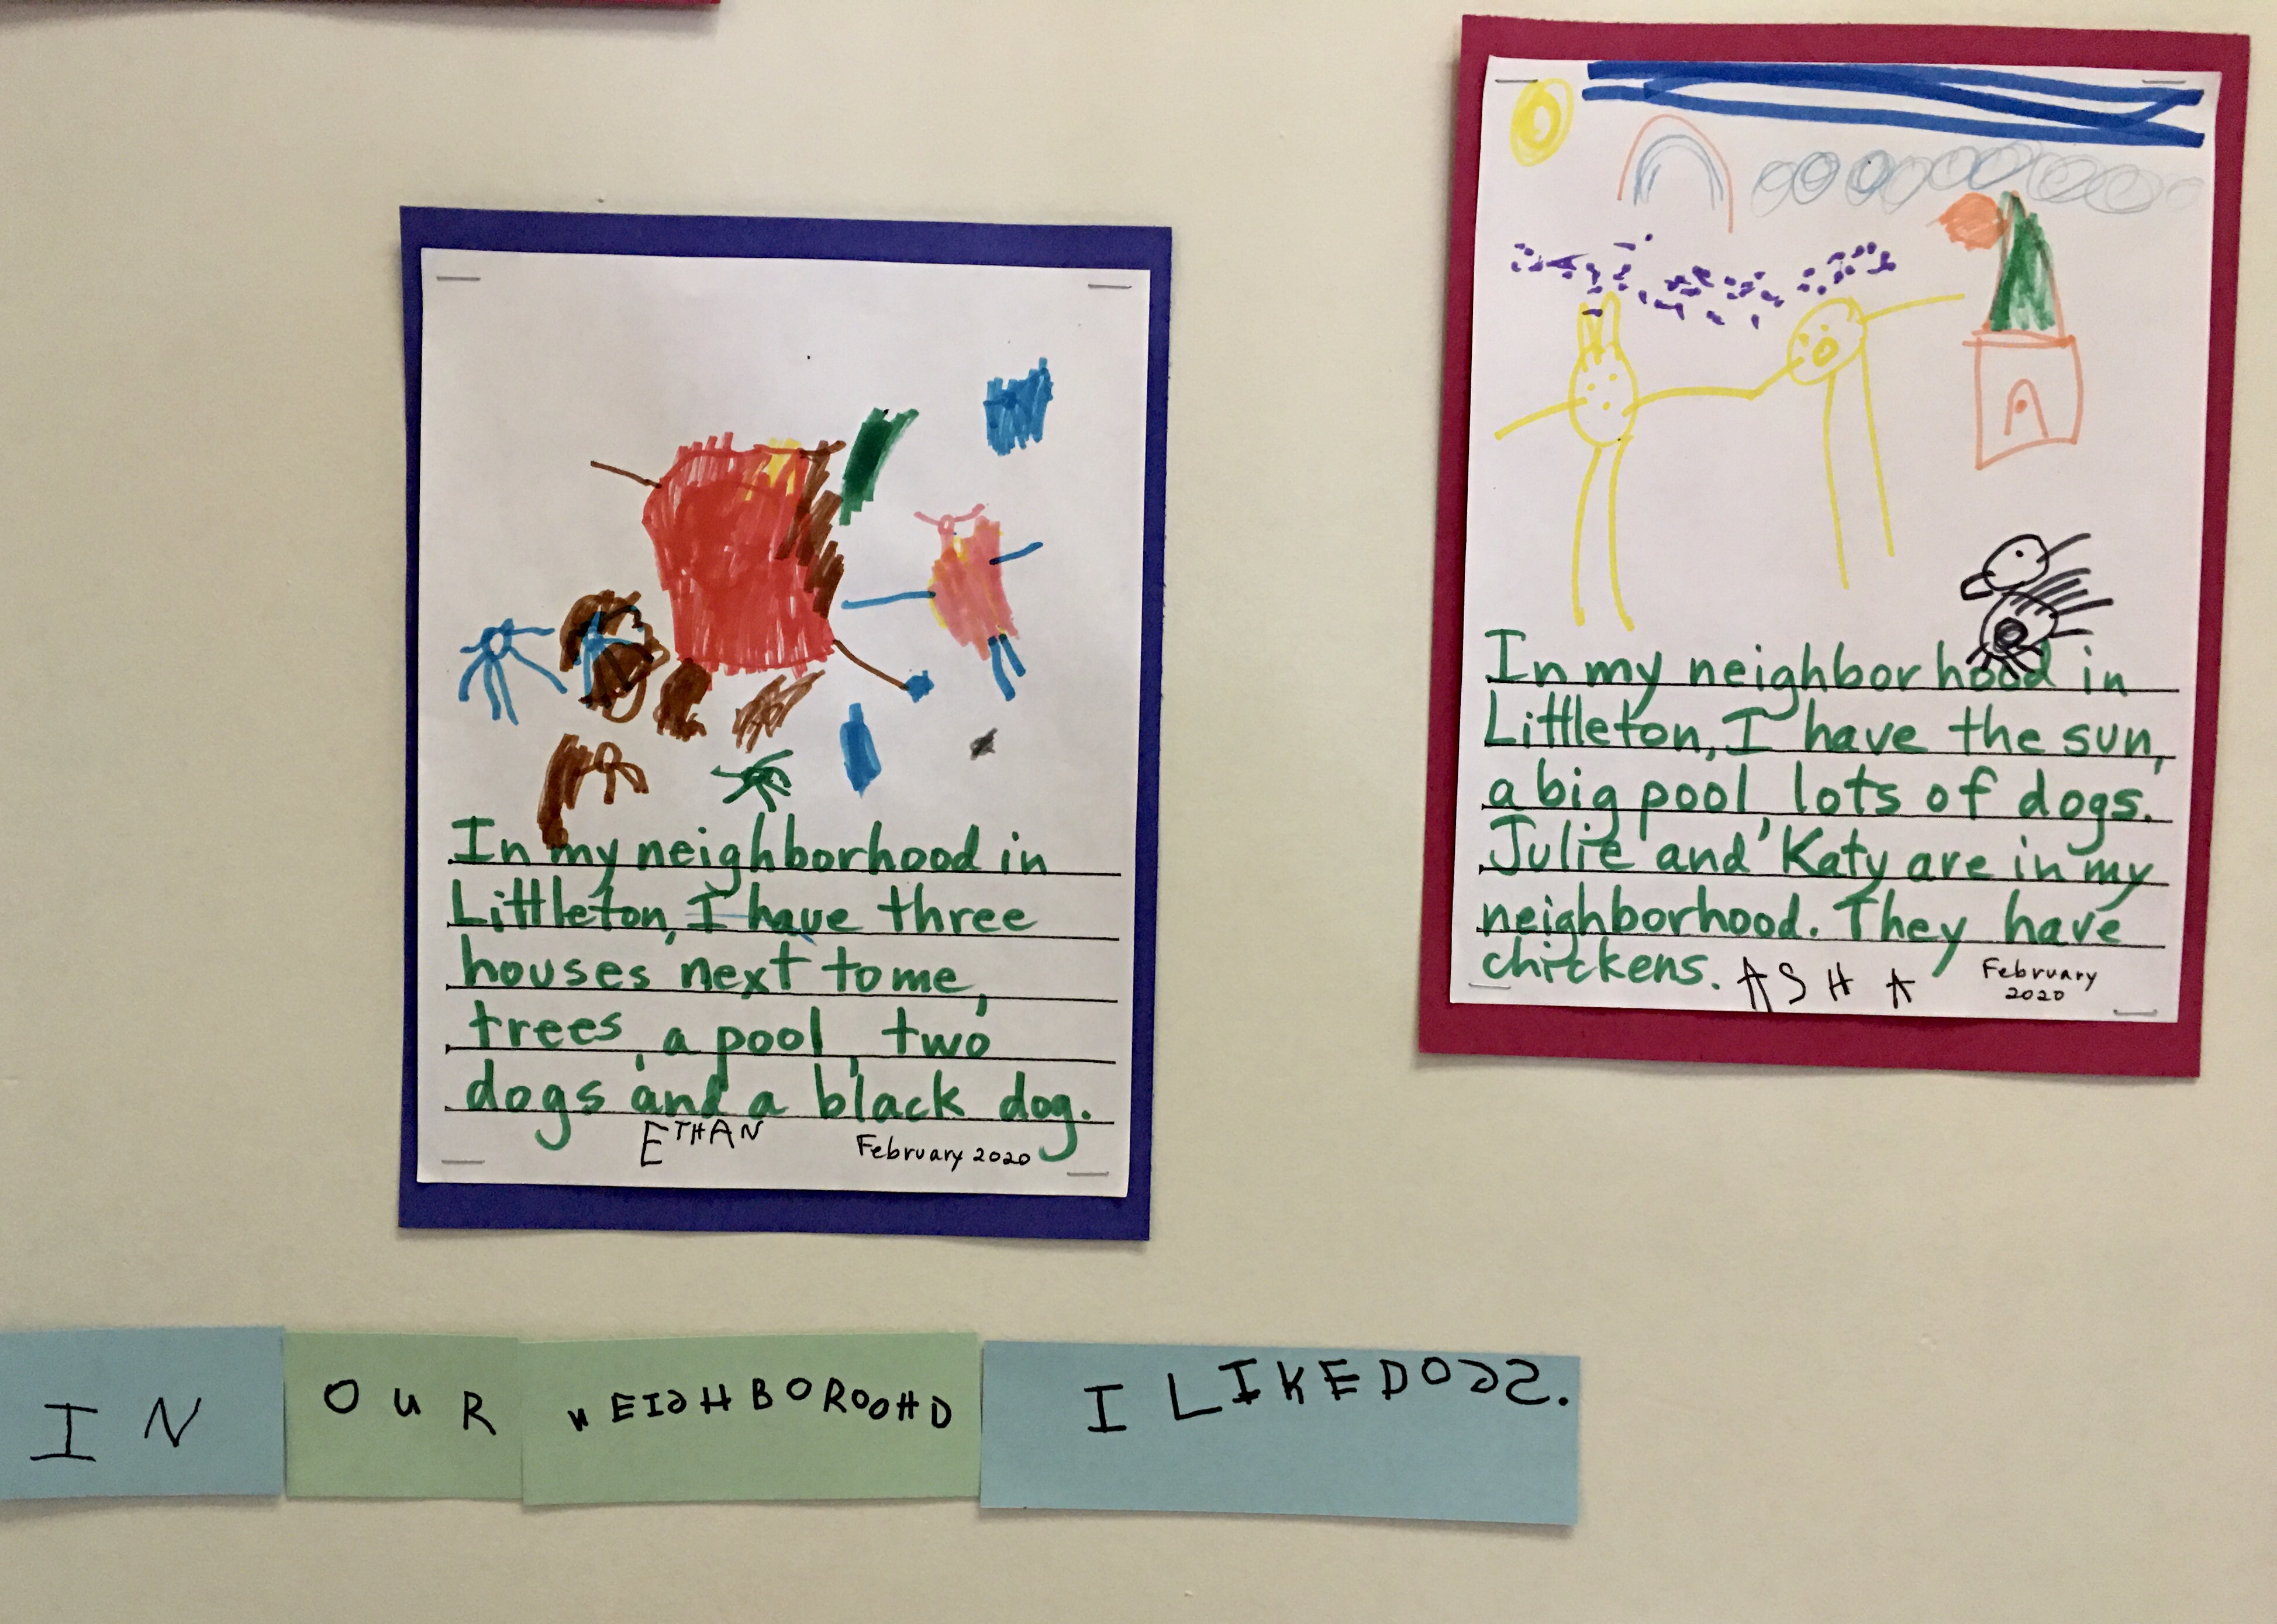 In my neighborhood in
Littleton, I have three
houses next to me,
trees, a pool, two
dogs and a black dog.
ETHAN February 2020
In my neighborhood in
Littleton, I have the sun,
a big pool, lots of dogs.
Julie and Katy are in my
neighborhood. They have
chickens. ASHA February
2020
IN OUR NEIGHBOROOHD I LIKE DOGS.